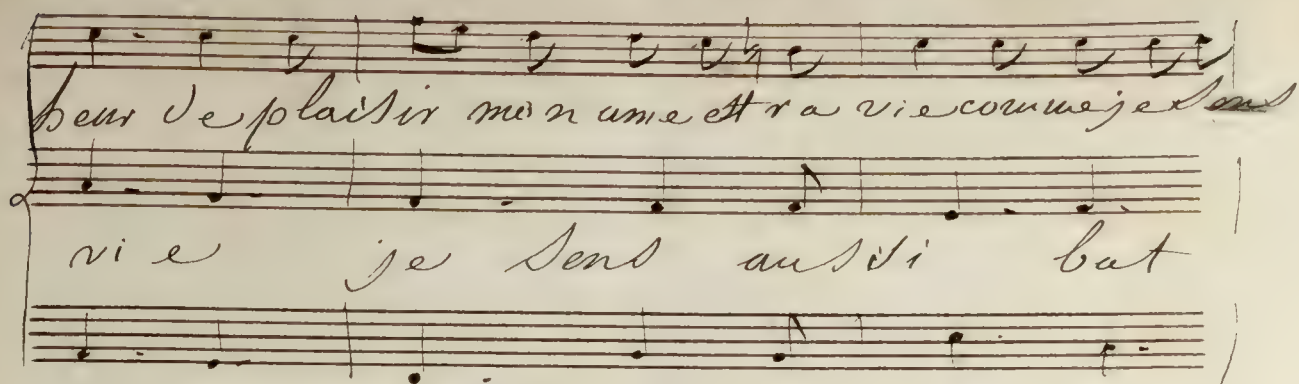 heur de plaisir mon ame est ra vie comme je sens
vi e je sens aussi bat